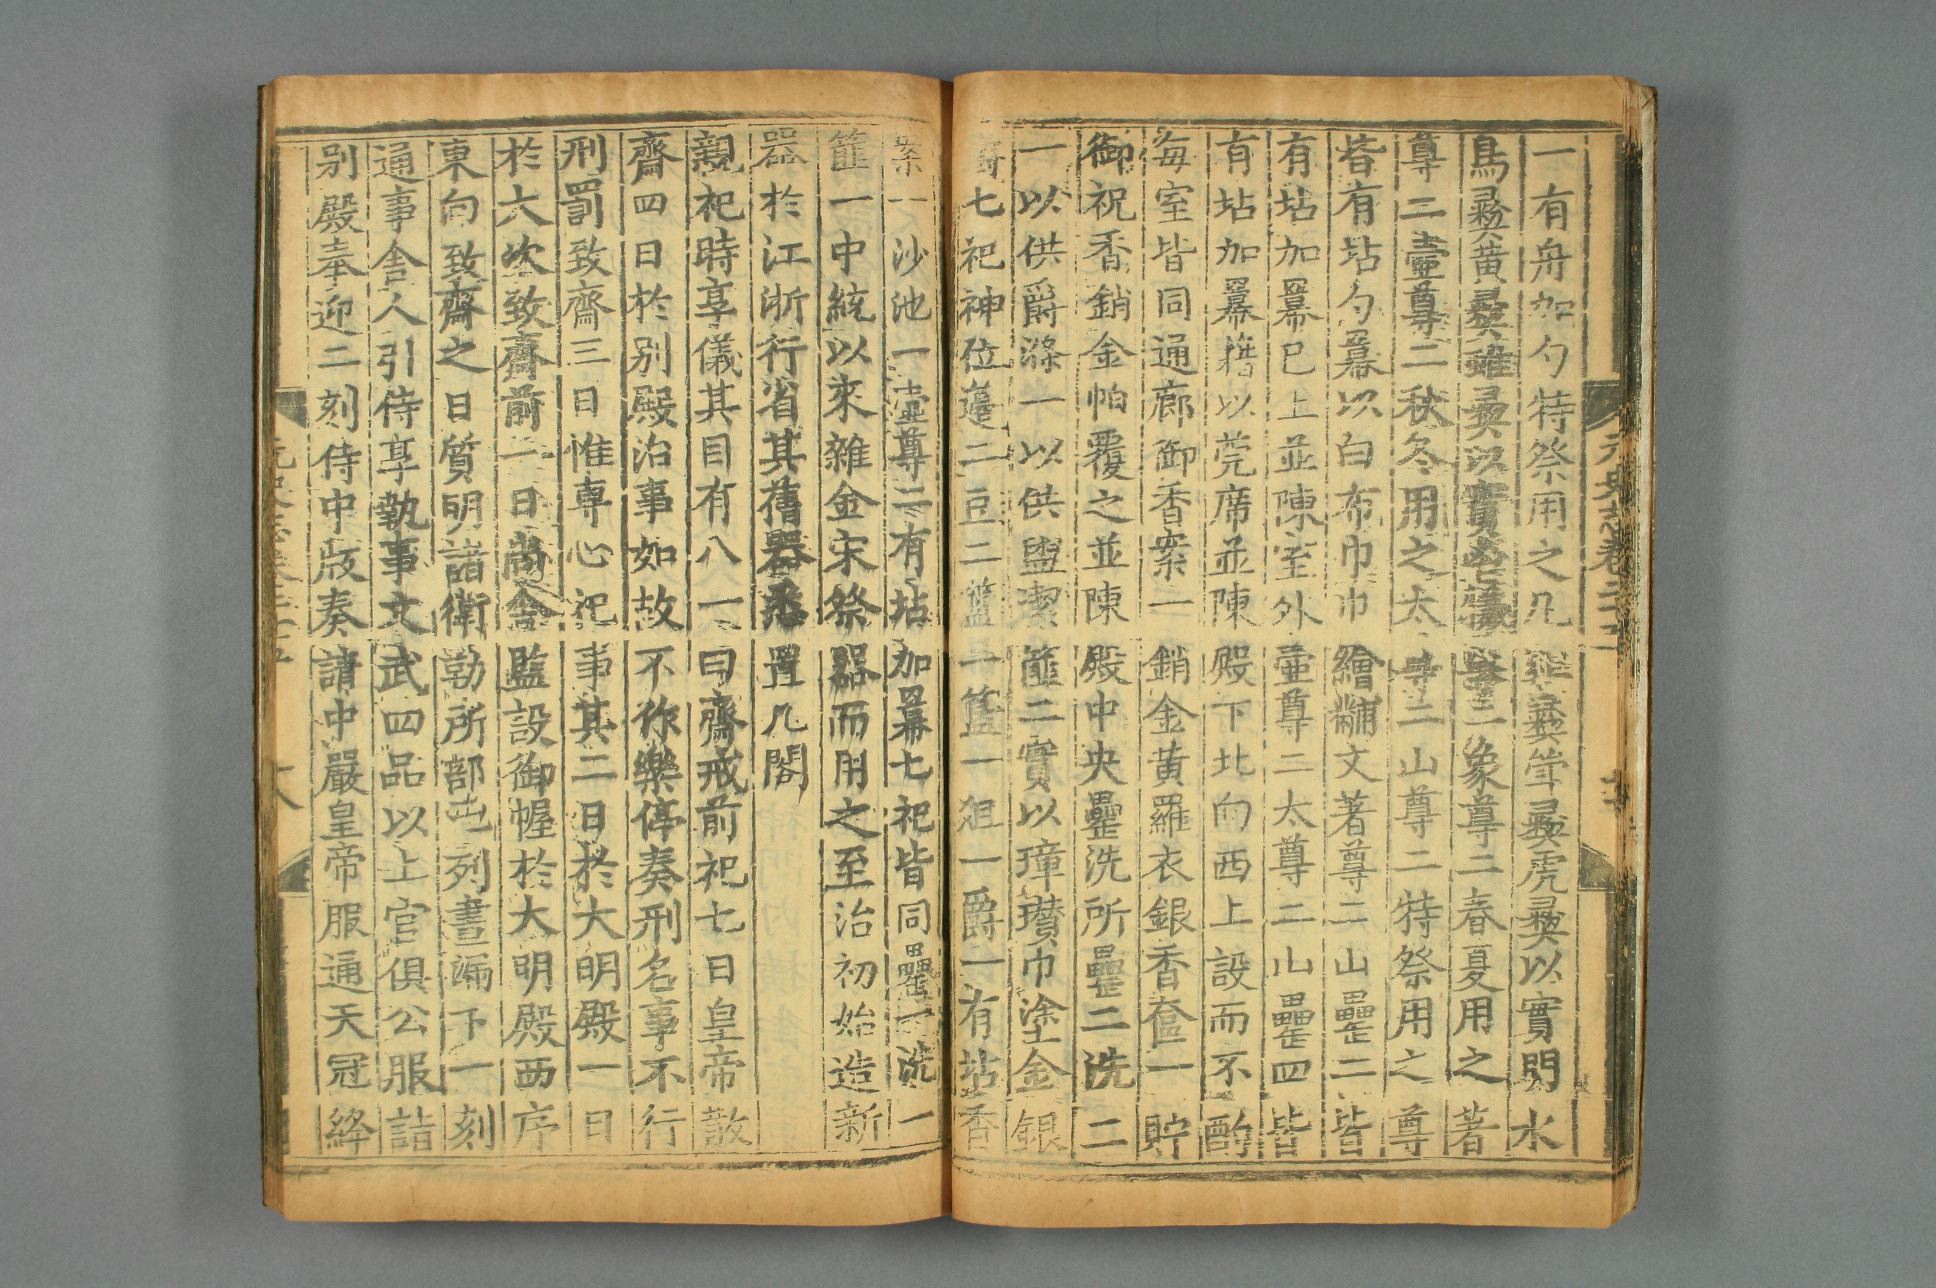 一有舟加勺特祭用之凡雞彝斝彝虎彝以實明水
鳥彝黃彝蜼彝以實鬯犧尊二象尊二春夏用之著
尊二壺尊二秋冬用之太尊二山尊二特祭用之尊
皆有坫勺羃以白布巾巾繪黼文著尊二山罍二皆
有坫加羃已上並陳室外壷尊二太尊二山罍四皆
有坫加羃藉以莞席並陳殿下北向西上設而不酌
每室皆同通廊御香案一銷金黃羅衣銀香奩一貯
御祝香銷金帕覆之並陳殿中央罍洗所罍二洗二
一以供爵滌一以供盥潔篚二實以璋瓚巾塗金銀
爵七祀神位籩二豆二簠一簋一俎一爵一有坫香
案一沙池一壷尊二有坫加羃七祀皆同罍一洗一
篚一中統以來雜金宋祭器而用之至治初始造新
器於江浙行省其舊器悉置几閣
親祀時享儀其目有八一曰齋戒前祀七日皇帝散
齋四日於别殿治事如故不作樂停奏刑名事不行
刑罰致齋三日惟專心祀事其二日於大明殿一日
於大次致齋前一日尚舍監設御幄於大明殿西序
東向致齋之日質明諸衛勒所部屯列晝漏下一刻
通事舎人引侍享執事文武四品以上官俱公服詣
别殿奉迎二刻侍中版奏請中嚴皇帝服通天冠絳
元史志卷二十五
十八